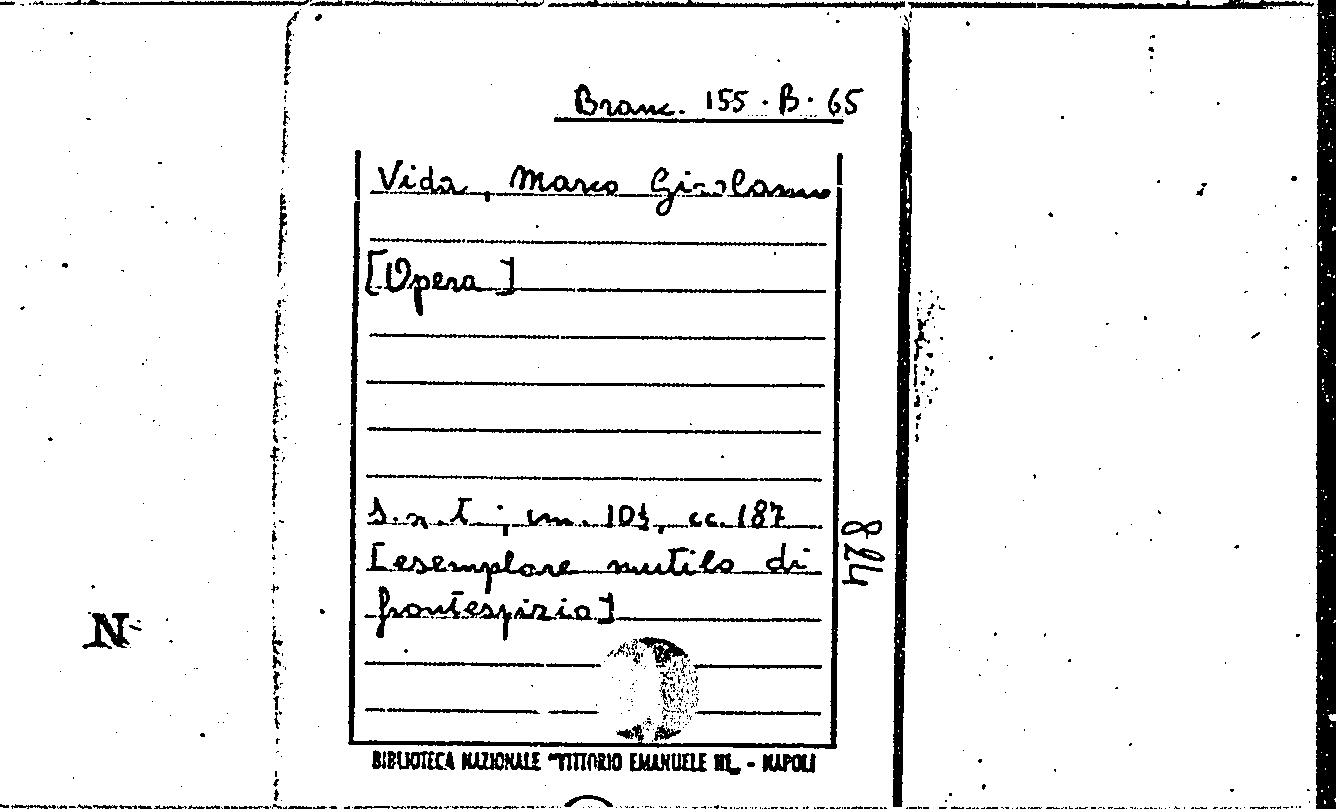 Branc. 155 · B · 65
Vida, Marco Girolamo
[Opera]
S.n.t.; cm. 10½, cc. 187
[esemplare mutilo di
frontespizio]
824
N
BIBLIOTECA NAZIONALE "VITTORIO EMANUELE III„ - NAPOLI